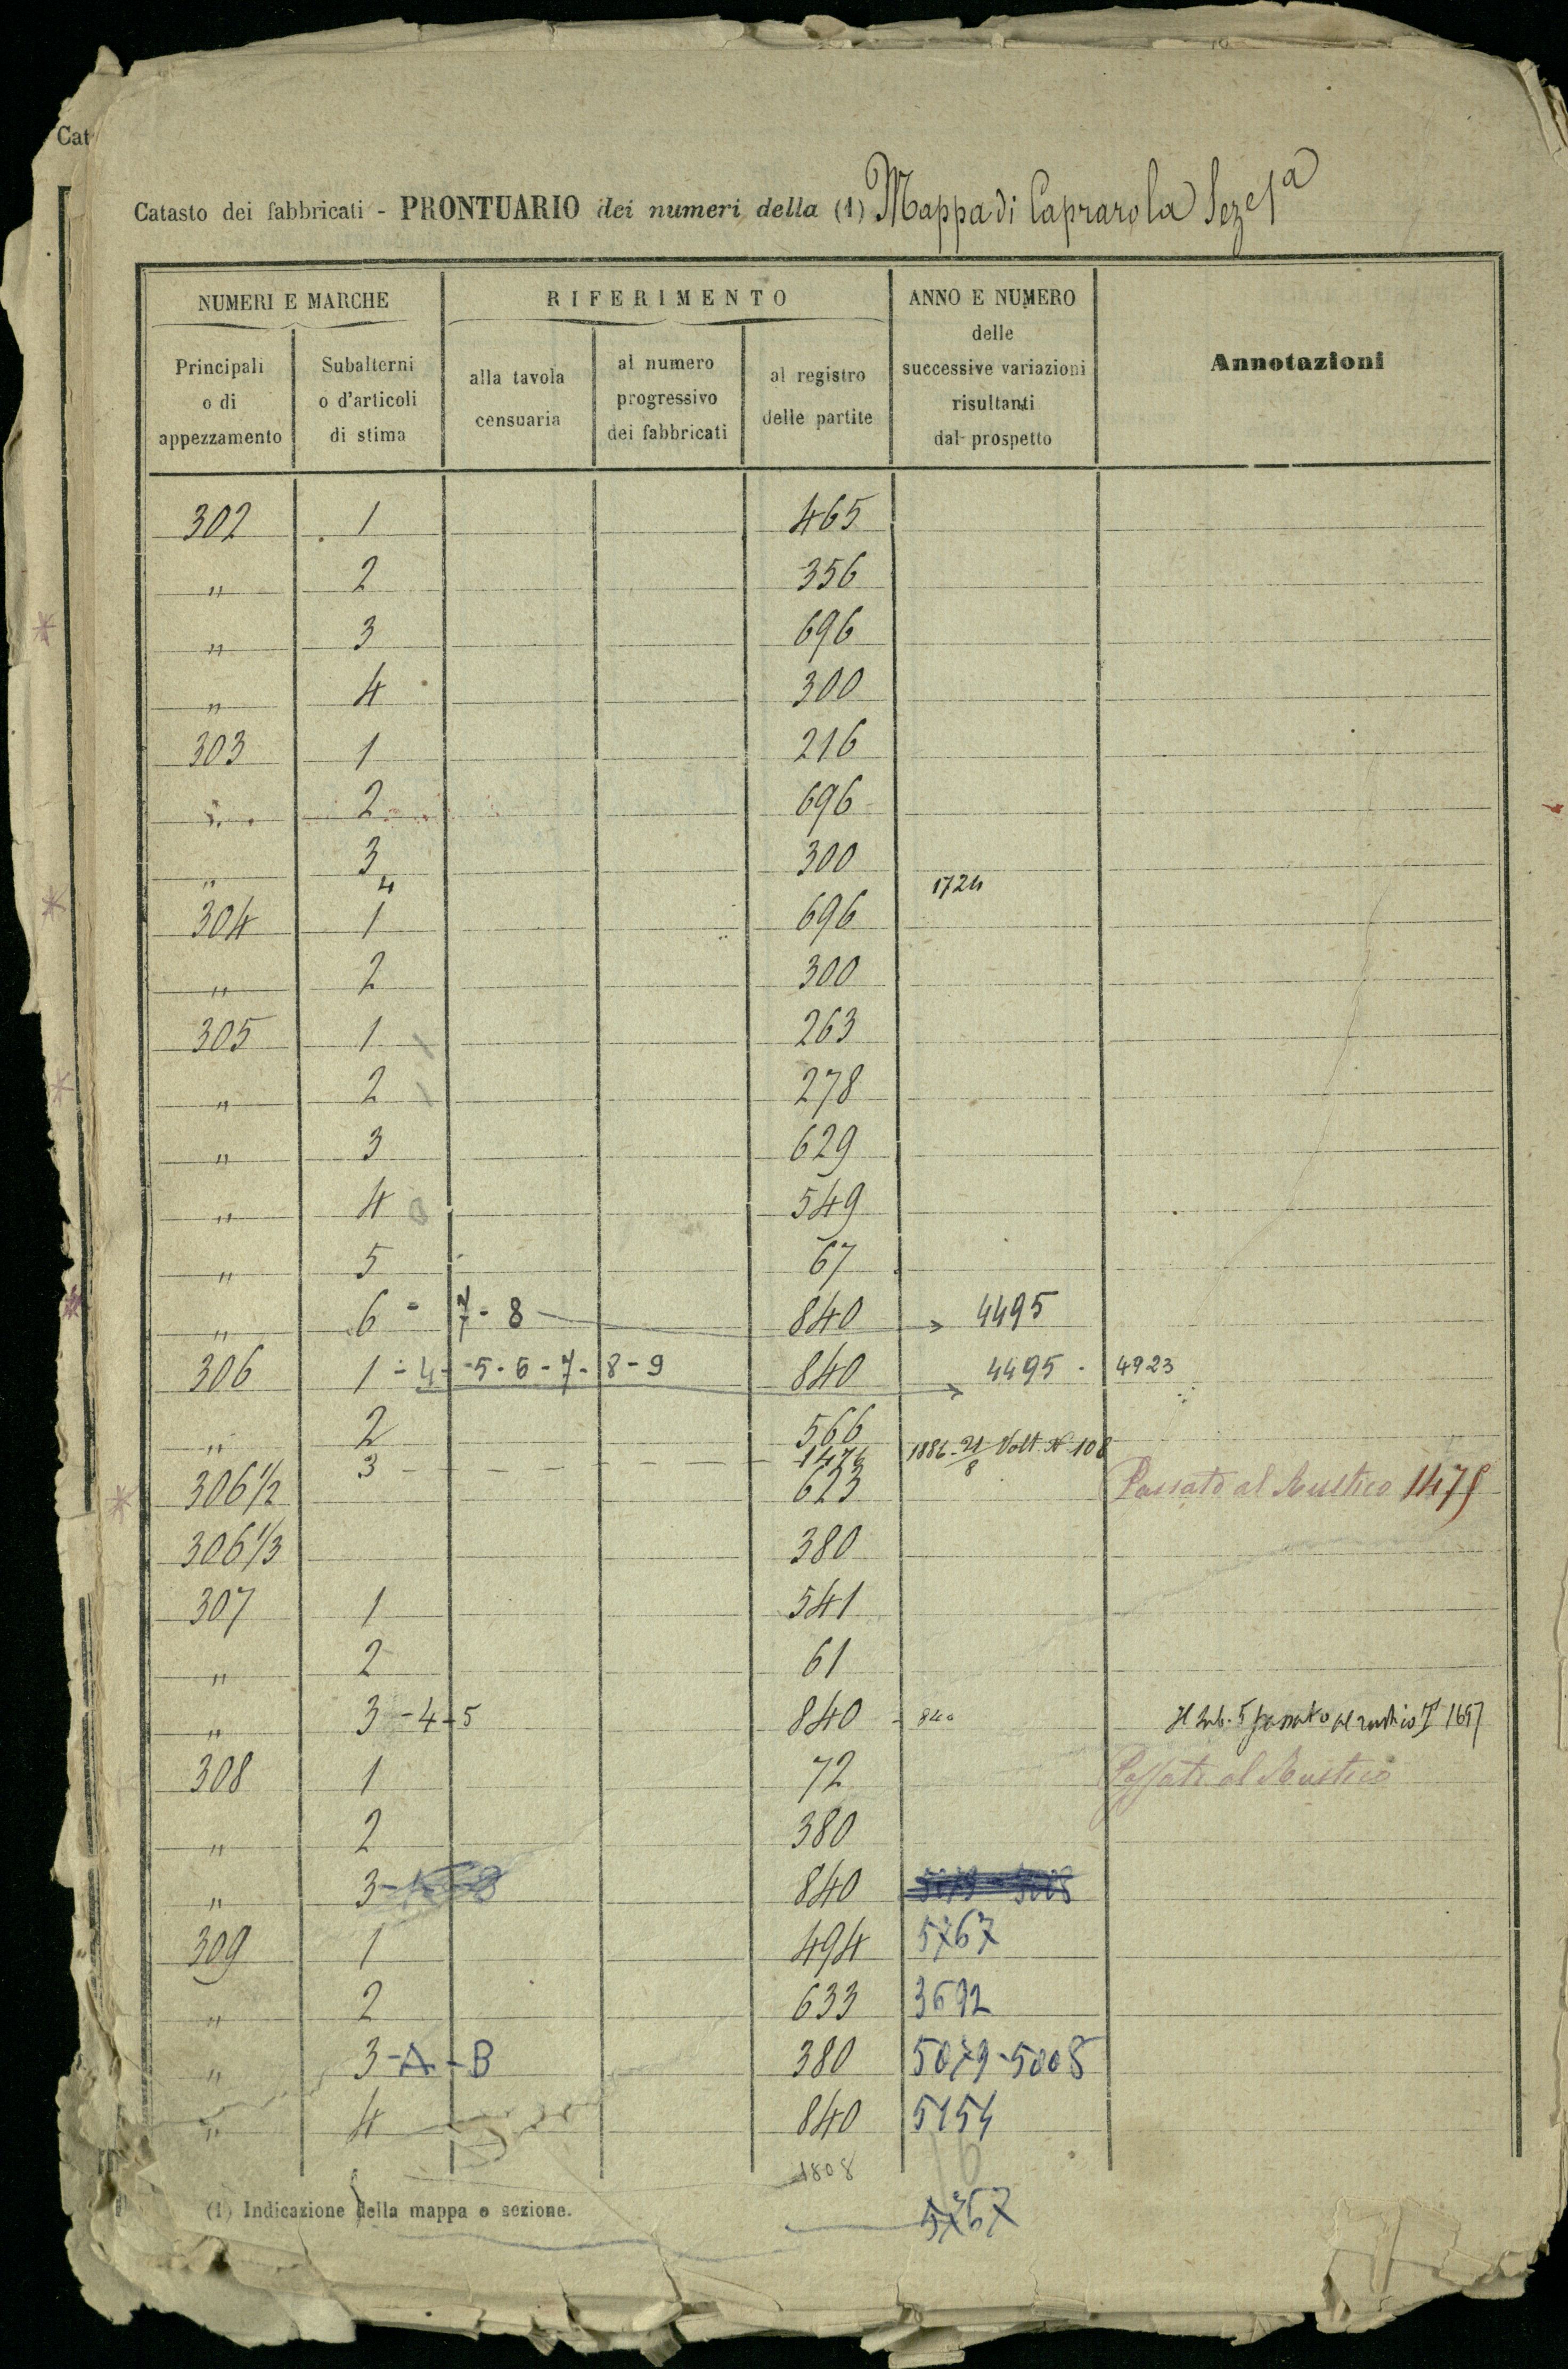 Cat
Catasto dei fabbricati - PRONTUARIO dei numeri della (1) Mappa di Caprarola Sez.e 1a
NUMERI E MARCHE
RIFERIMENTO
ANNO E NUMERO delle successive variazioni risultanti dal prospetto
Annotazioni
Principali o di appezzamento
Subalterni o d'articoli di stima
alla tavola censuaria
al numero progressivo dei fabbricati
al registro delle partite
302 1 465
" 2 356
" 3 696
" 4 300
303 1 216
" 2 696
" 3 300
4 1724
304 1 696
" 2 300
305 1 263
" 2 278
" 3 629
" 4 549
" 5 67
" 6 - 7 - 8 840 4495
306 1 - 4 - 5 - 6 - 7 - 8 - 9 840 4495 - 4923
" 2 566
3 - - - - - - 1476 1886 - 21/8 Volt. N 108
306 1/2 623 Passato al Rustico 1475
306 1/3 380
307 1 541
" 2 61
" 3 - 4 - 5 840 - 840 Il Sub. 5 passato al rustico 1657
308 1 72 Passato al Rustico
" 2 380
" 3 840
309 1 494 5767
" 2 633 3692
" 3 - A - B 380 5079 - 5008
" 4 840 5154
1808
(1) Indicazione della mappa o sezione.
5767